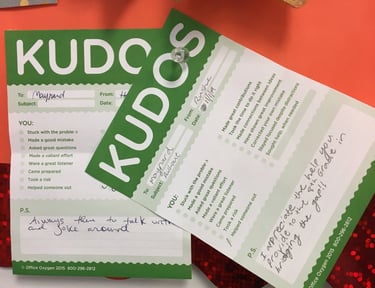 KUDOS
To: Maynard From:
Subject: Date:
YOU:
Stuck with the proble
Made a good mistake
Asked great questions
Made a valiant effort
Were a great listener
Came prepared
Took a risk
Helped someone out
P.S.
Always there to talk with
and joke around
© Office Oxygen 2015 800-296-2812
KUDOS
To: Maynard From:
Subject: Date:
YOU:
Stuck with the proble
Made a good mistake
Asked great questions
Made a valiant effort
Were a great listener
Came prepared
Took a risk
Helped someone out
Made great contributions
Took the time to do it right
Made connections between ideas
Made great improvement
Corrected your own mistake
Stayed focused despite distractions
Sought help when needed
P.S.
I appreciate the help you
provide to the
bridging the gap!!
© Office Oxygen 2015 800-296-2812